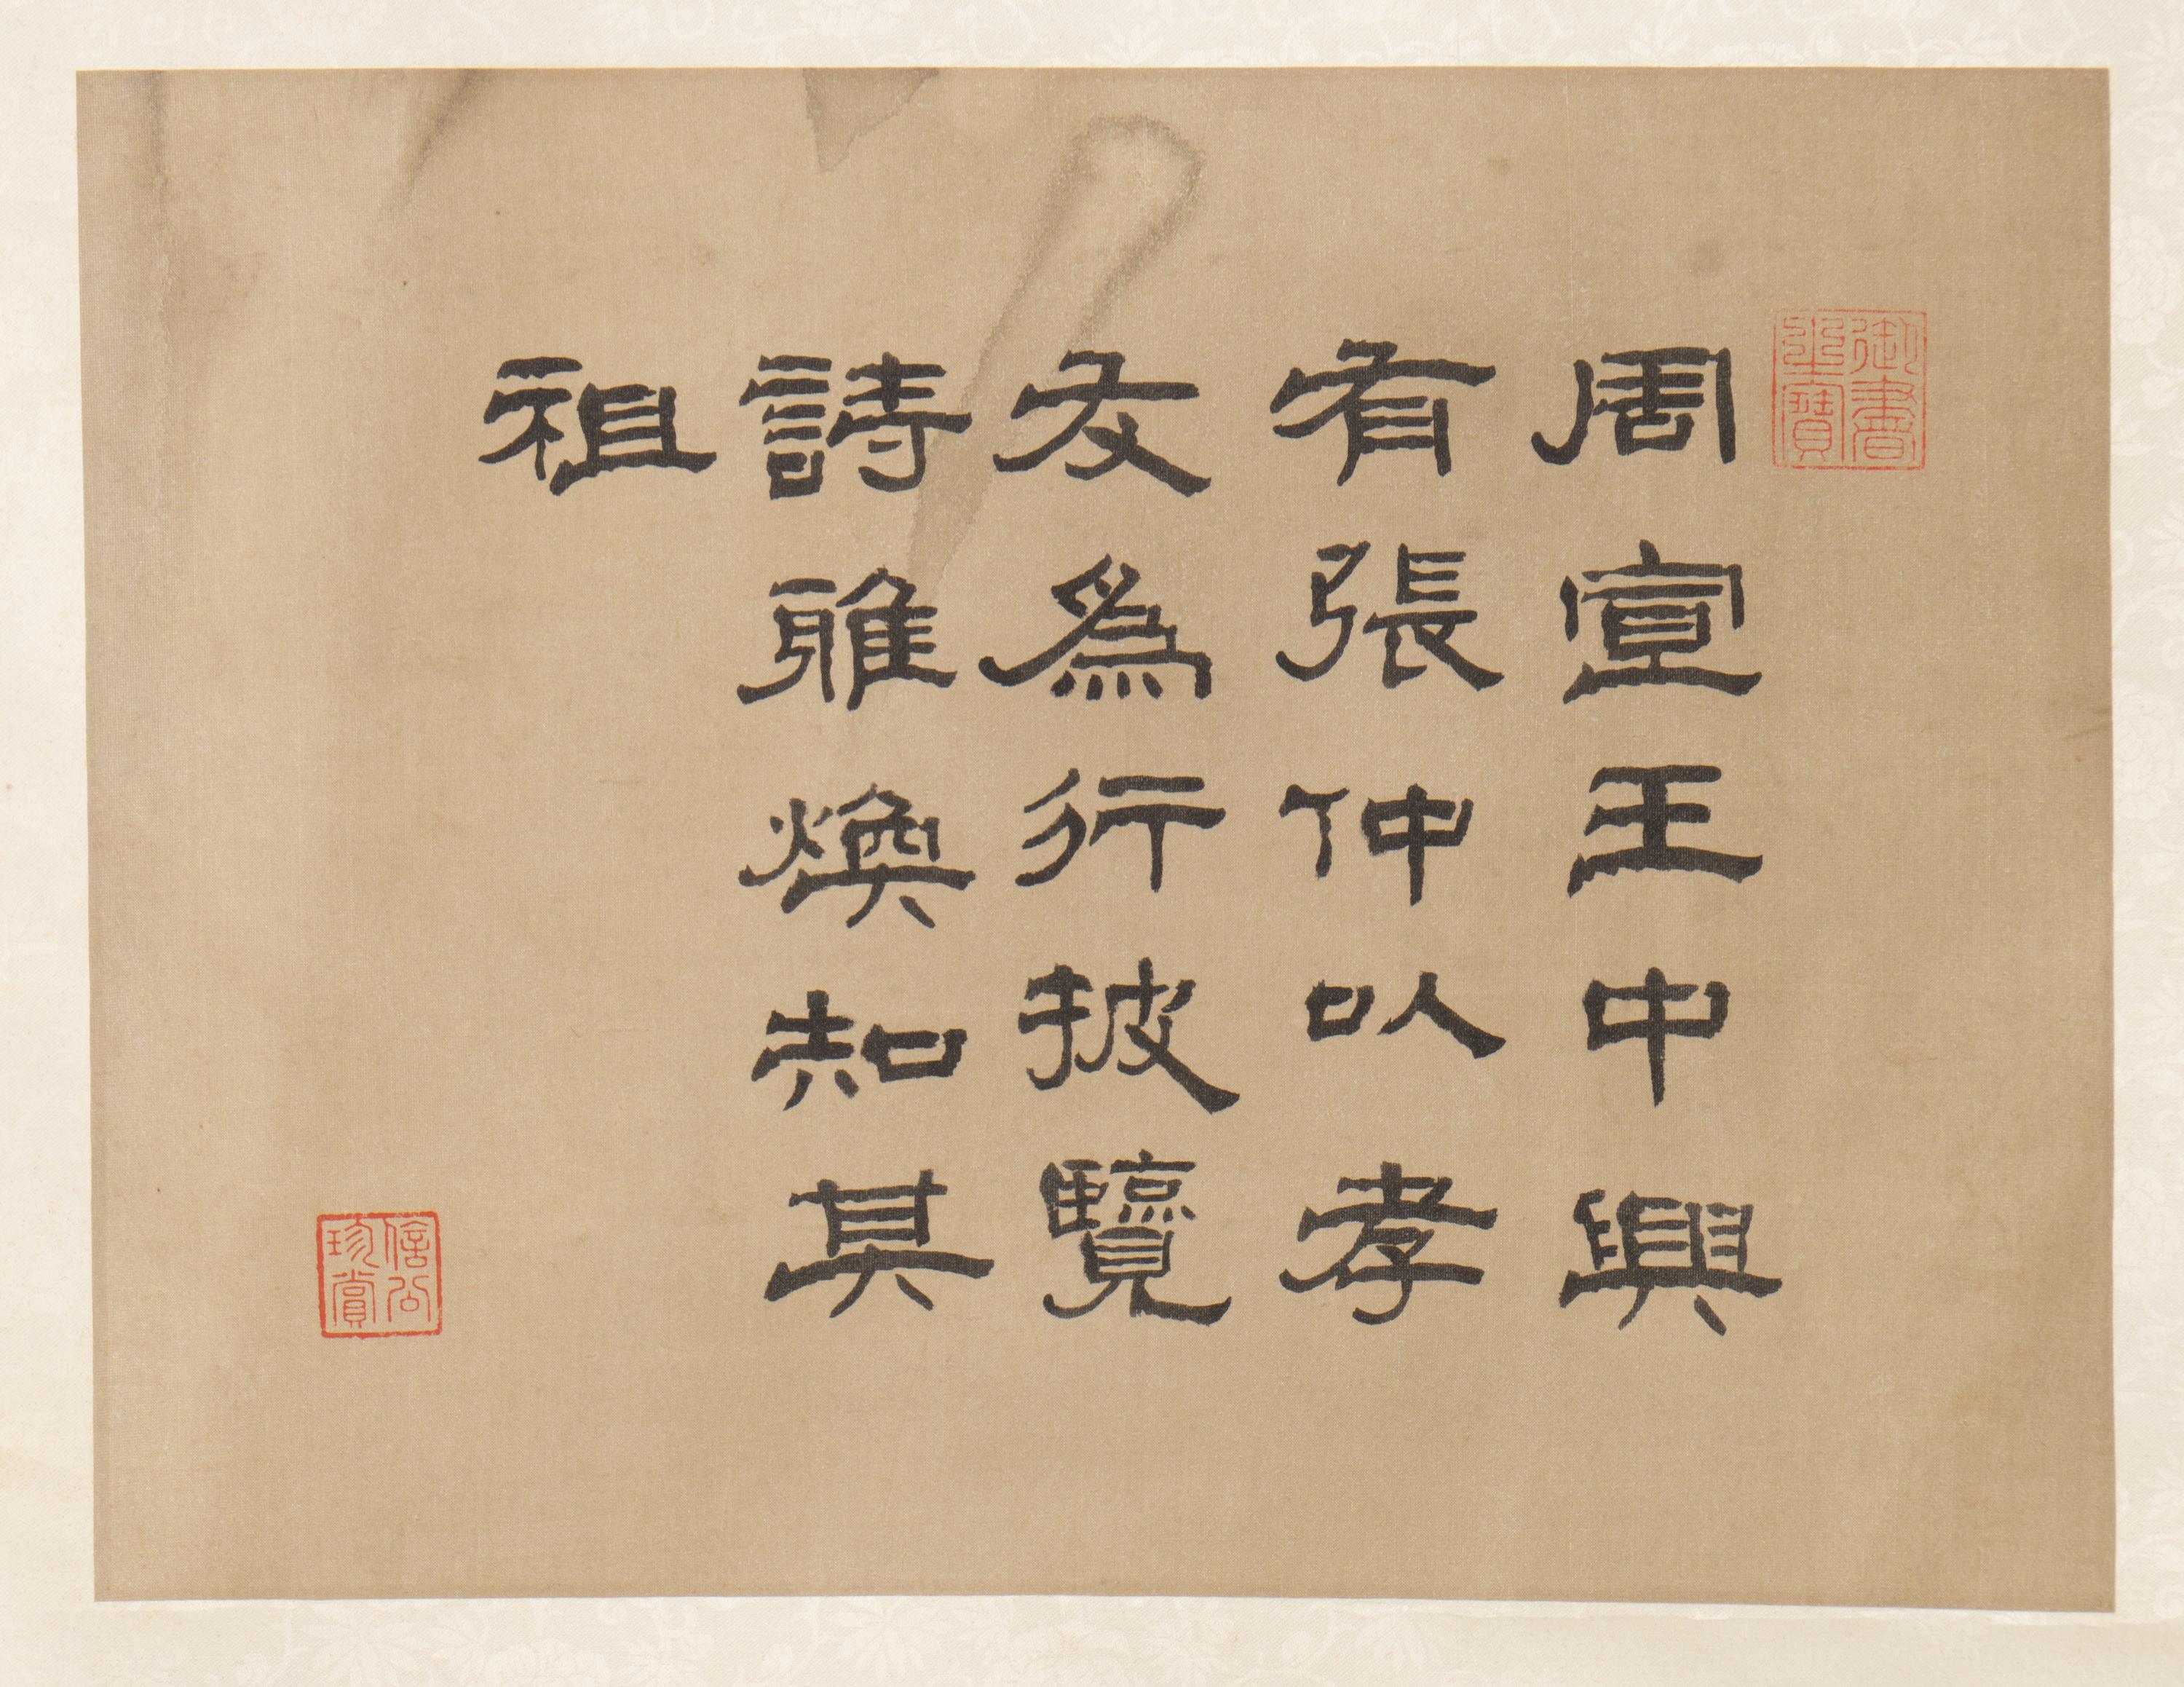 御書之寶
周宣王中興
有張仲以孝
友為行披覽
詩雅煥知其
祖
信公珍賞